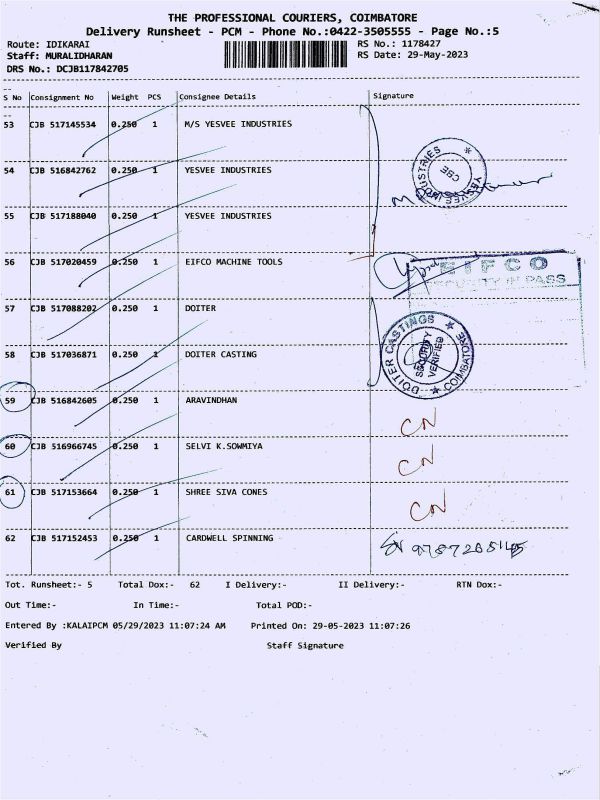 THE PROFESSIONAL COURIERS, COIMBATORE
Delivery Runsheet - PCM - Phone No.:0422-3505555 - Page No.:5
Route: IDIKARAI RS No.: 1178427
Staff: MURALIDHARAN RS Date: 29-May-2023
DRS No.: DCJB117842705
S No Consignment No Weight PCS Consignee Details Signature
53 CJB 517145534 0.250 1 M/S YESVEE INDUSTRIES
54 CJB 516842762 0.250 1 YESVEE INDUSTRIES
YESVEE INDUSTRIES
CBE
55 CJB 517188040 0.250 1 YESVEE INDUSTRIES
56 CJB 517020459 0.250 1 EIFCO MACHINE TOOLS
EIFCO
SECURITY IN PASS
57 CJB 517088202 0.250 1 DOITER
58 CJB 517036871 0.250 1 DOITER CASTING
DOITER CASTINGS
COIMBATORE
SECURITY
VERIFIED
59 CJB 516842605 0.250 1 ARAVINDHAN CN
60 CJB 516966745 0.250 1 SELVI K.SOWMIYA CN
61 CJB 517153664 0.250 1 SHREE SIVA CONES CN
62 CJB 517152453 0.250 1 CARDWELL SPINNING
Tot. Runsheet:- 5 Total Dox:- 62 I Delivery:- II Delivery:- RTN Dox:-
Out Time:- In Time:- Total POD:-
Entered By :KALAIPCM 05/29/2023 11:07:24 AM Printed On: 29-05-2023 11:07:26
Verified By Staff Signature